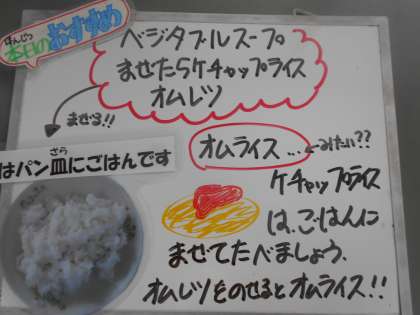 ほんじつ
本日のおすすめ
ベジタブルスープ
ませたらケチャップライス
オムレツ
ませる!!
さら
はパン皿にごはんです
オムライス…←みたい??
ケチャップライス
は、ごはんに
ませてたべましょう、
オムレツをのせるとオムライス!!